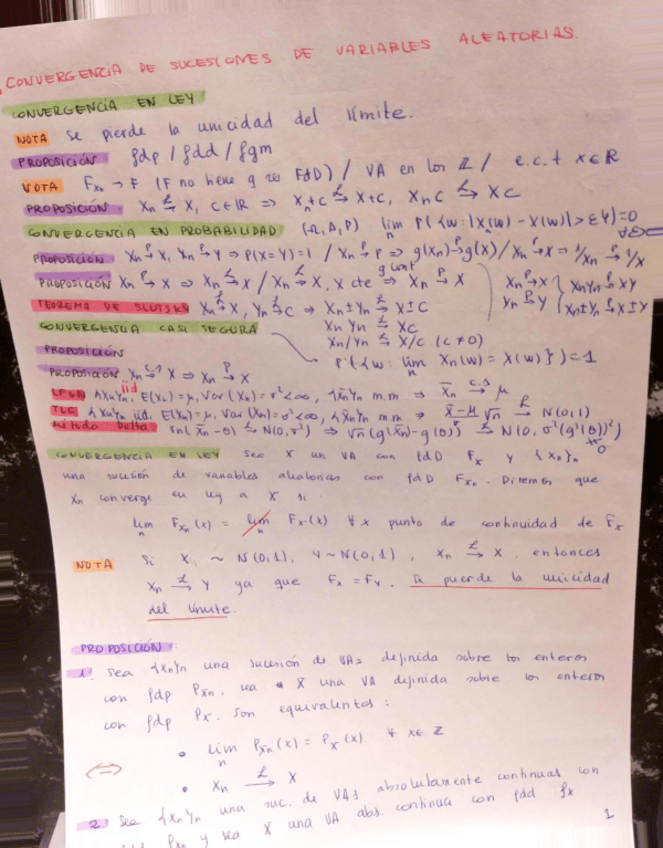 CONVERGENCIA DE SUCESIONES DE VARIABLES ALEATORIAS.
CONVERGENCIA EN LEY
NOTA Se pierde la unicidad del límite.
PROPOSICIÓN fdp / fdd / fgm
NOTA F_Xn → F (F no tiene q ser FdD) / VA en los ℤ / e.c.t x∈ℝ
PROPOSICIÓN Xn →^L X, C∈ℝ => Xn+C →^L X+C, XnC →^L XC
CONVERGENCIA EN PROBABILIDAD (Ω, A, P) lim_n P({w: |Xn(w) - X(w)| > ε}) = 0 ∀ε>0
PROPOSICIÓN Xn →^P X, Xn →^P Y => P(X=Y)=1 / Xn →^P P => g(Xn) →^P g(X) / Xn →^P X => 1/Xn →^P 1/X
g cont
PROPOSICIÓN Xn →^P X => Xn →^L X / Xn →^L X, X cte => Xn →^P X
Xn →^P X Yn →^P Y } XnYn →^P XY Xn±Yn →^P X±Y
TEOREMA DE SLUTSKY Xn →^L X, Yn →^L C => Xn±Yn →^L X±C
XnYn →^L XC
Xn/Yn →^L X/C (C≠0)
CONVERGENCIA CASI SEGURA
PROPOSICIÓN P({w: lim_n Xn(w) = X(w)}) = 1
PROPOSICIÓN Xn →^c.s X => Xn →^P X
{Xn}n iid, E(Xn)=μ, Var(Xn)=σ²<∞, {X̄n}n m.m => X̄n →^c.s μ
TLC {Xn}n iid, E(Xn)=μ, Var(Xn)=σ²<∞, {X̄n}n m.m => X̄-μ √n →^L N(0,1)
Método Delta √n(X̄n-θ) →^L N(0,σ²) => √n(g(X̄n)-g(θ)) →^L N(0, σ²(g'(θ))²)
≠0
CONVERGENCIA EN LEY Sea X un VA con FdD F_X y {Xn}n
una sucesión de variables aleatorias con FdD F_Xn. Diremos que
Xn converge en ley a X si
lim_n F_Xn(x) = F_X(x) ∀x punto de continuidad de F_X
NOTA Si X ~ N(0,1), Y~N(0,1), Xn →^L X. entonces
Xn →^L Y ya que F_X = F_Y. Se pierde la unicidad
del límite.
PROPOSICIÓN:
1. Sea {Xn}n una sucesión de VAs definida sobre los enteros
con fdp P_Xn, sea X una VA definida sobre los enteros
con fdp P_X. Son equivalentes:
• lim_n P_Xn(x) = P_X(x) ∀ x∈ℤ
<=>
• Xn →^L X
2. Sea {Xn}n una suc. de VAs absolutamente continuas con
y sea X una VA abs. continua con fdd fx
1